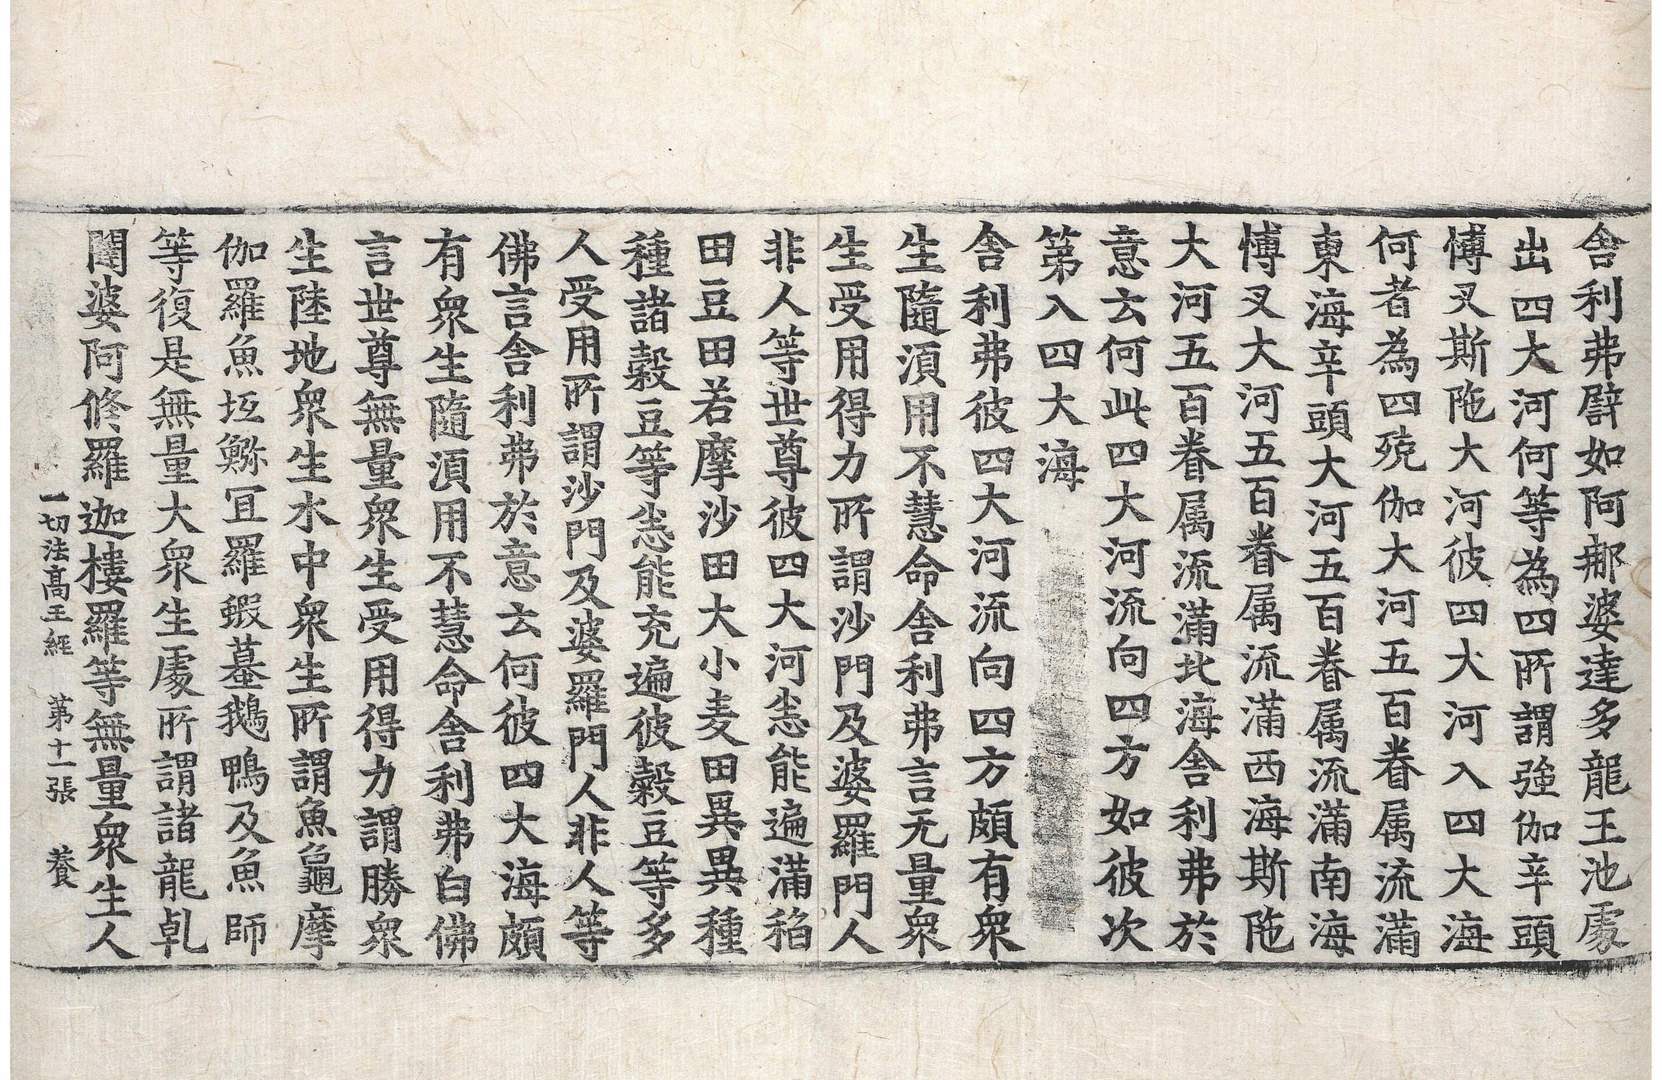 舎利弗譬如阿那婆達多龍王池處
出四大河何等為四所謂強伽辛頭
愽叉斯陁大河彼四大河入四大海
何者為四殑伽大河五百眷属流滿
東海辛頭大河五百眷属流滿南海
愽叉大河五百眷属流滿西海斯陁
大河五百眷属流滿北海舎利弗於
意云何此四大河流向四方如彼次
第入四大海
舎利弗彼四大河流向四方頗有衆
生隨湏用不慧命舎利弗言无量衆
生受用得力所謂沙門及婆羅門人
非人等世尊彼四大河悉能遍滿稻
田豆田若摩沙田大小麦田異異種
種諸糓豆等悉能充遍彼糓豆等多
人受用所謂沙門及婆羅門人非人等
佛言舎利弗於意云何彼四大海頗
有衆生隨湏用不慧命舎利弗白佛
言世尊無量衆生受用得力謂勝衆
生陸地衆生水中衆生所謂魚龜摩
伽羅魚坘鰯冝羅蝦蟇鵝鴨及魚師
等復是無量大衆生處所謂諸龍乹
闥婆阿修羅迦樓羅等無量衆生人
一切法高王經 第十一張 養